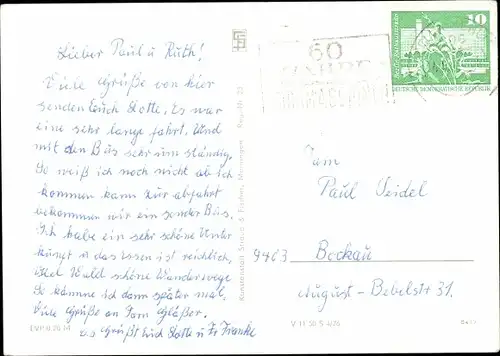 Lieber Paul u Ruth!
Viele Grüße von hier
senden Euch Lotte. Es war
eine sehr lange fahrt. Und
mit den Bus sehr um ständig.
So weiß ich noch nicht ob ich
kommen kann zur abfahrt
bekommen wir ein sonder Bus.
Ich habe ein sehr schöne Unter
kunft u das Essen ist reichlich,
Viel Wald schöne Wanderwege
So kämme ich dann später mal.
Viele Grüße an Fam Gläßer.
es Grüßt Euch Lotte u Fr Franke
EVP 0,20 M
Kunstanstalt Straub & Fischer, Meiningen
Reg.-Nr. 23
60
JAHRE
10
DEUTSCHE DEMOKRATISCHE REPUBLIK
Fam
Paul Seidel
9463 Bockau
August-Bebelstr 31.
V 11 50 S 4/76